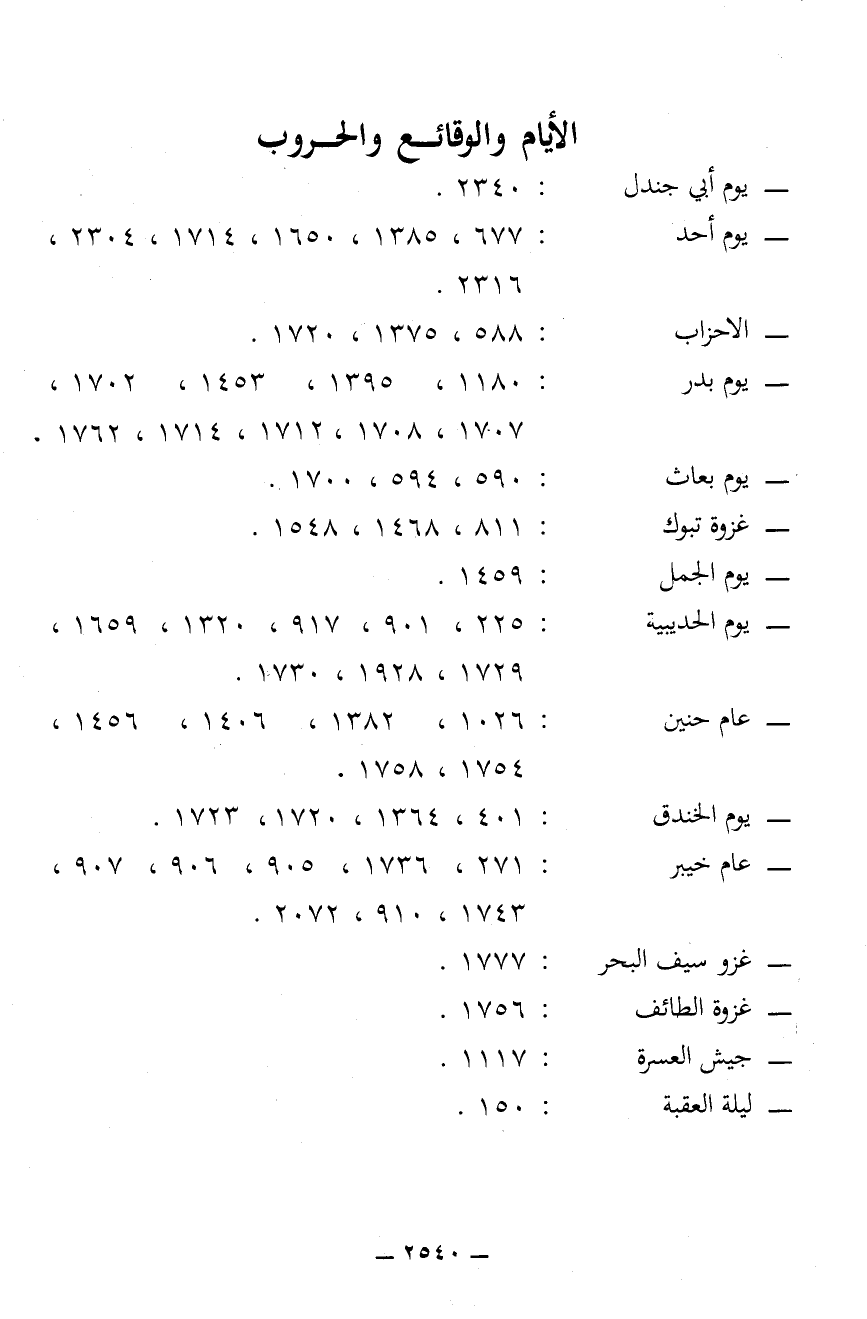 الأيام والوقائـع والحـروب
— يوم أبي جندل : ٢٣٤٠ .
— يوم أحد : ٦٧٧ ، ١٣٨٥ ، ١٦٥٠ ، ١٧١٤ ، ٢٣٠٤ ،
٢٣١٦ .
— الاحزاب : ٥٨٨ ، ١٣٧٥ ، ١٧٢٠ .
— يوم بدر : ١١٨٠ ، ١٣٩٥ ، ١٤٥٣ ، ١٧٠٢ ،
١٧٠٧ ، ١٧٠٨ ، ١٧١٢ ، ١٧١٤ ، ١٧٦٢ .
— يوم بعاث : ٥٩٠ ، ٥٩٤ ، ١٧٠٠ .
— غزوة تبوك : ٨١١ ، ١٤٦٨ ، ١٥٤٨ .
— يوم الجمل : ١٤٥٩ .
— يوم الحديبية : ٢٢٥ ، ٩٠١ ، ٩١٧ ، ١٣٢٠ ، ١٦٥٩ ،
١٧٢٩ ، ١٩٢٨ ، ١٧٣٠ .
— عام حنين : ١٠٢٦ ، ١٣٨٢ ، ١٤٠٦ ، ١٤٥٦ ،
١٧٥٤ ، ١٧٥٨ .
— يوم الخندق : ٤٠١ ، ١٣٦٤ ، ١٧٢٠ ، ١٧٢٣ .
— عام خيبر : ٢٧١ ، ١٧٣٦ ، ٩٠٥ ، ٩٠٦ ، ٩٠٧ ،
١٧٤٣ ، ٩١٠ ، ٢٠٧٢ .
— غزو سيف البحر : ١٧٧٧ .
— غزوة الطائف : ١٧٥٦ .
— جيش العسرة : ١١١٧ .
— ليلة العقبة : ١٥٠ .
— ٢٥٤٠ —